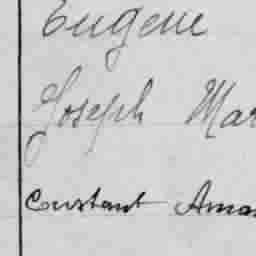 Eugene
Joseph Mar
Constant Aman